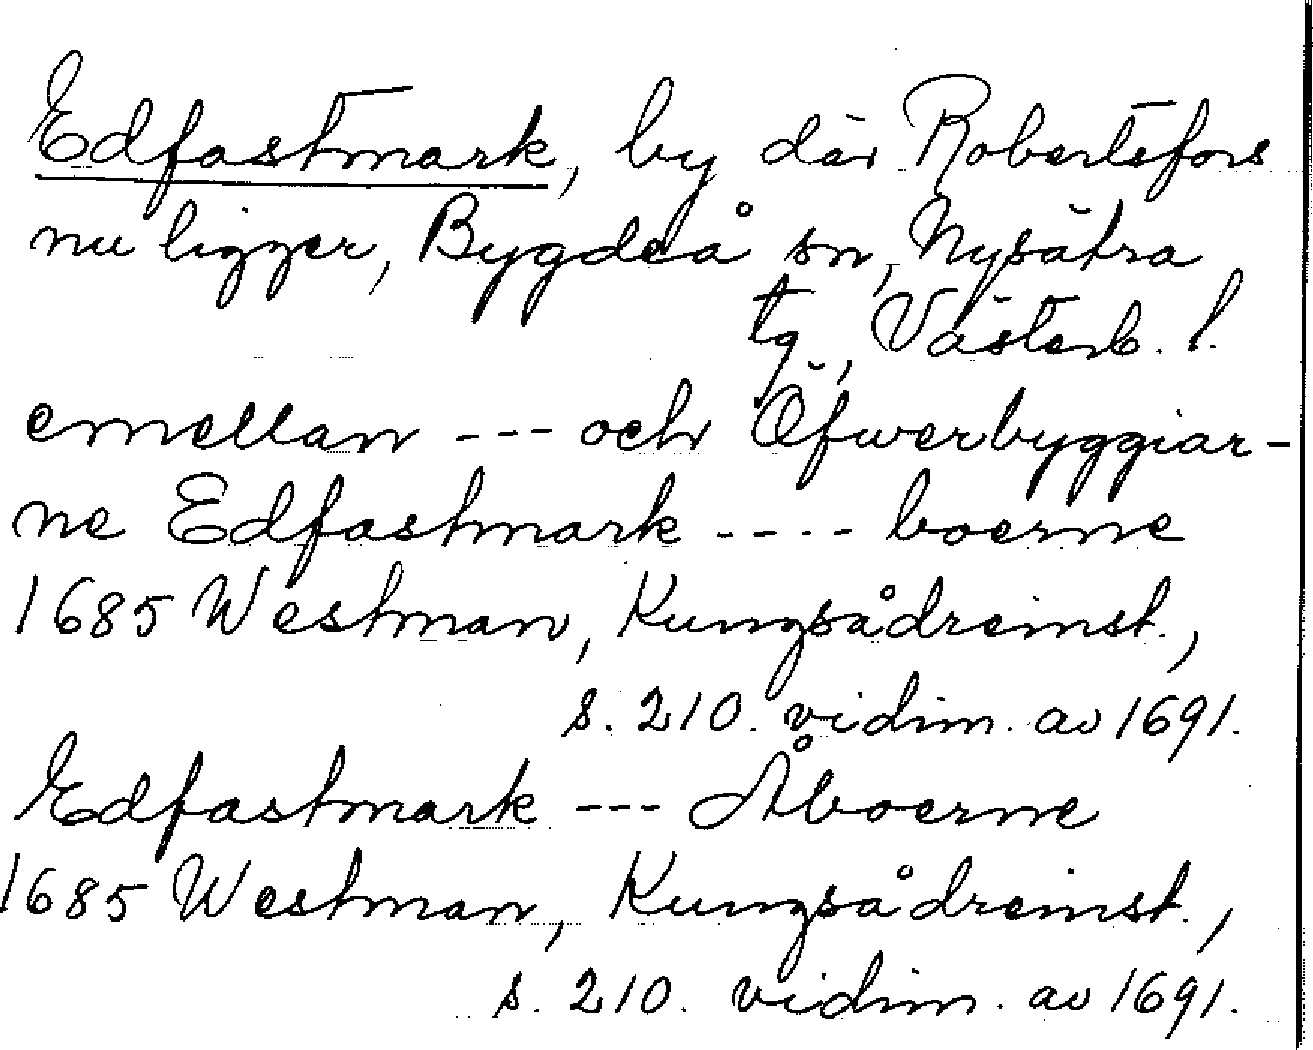 Edfastmark, by där Robertsfors
nu ligger, Bygdeå sn, Nysätra
tg, Västerb. l.
emellan --- och Öfwerbyggiar-
ne Edfastmark ---- boerne
1685 Westman, Kungsådreinst.,
s. 210. vidim. av 1691.
Edfastmark --- Åboerne
1685 Westman, Kungsådreinst.,
s. 210. vidim. av 1691.